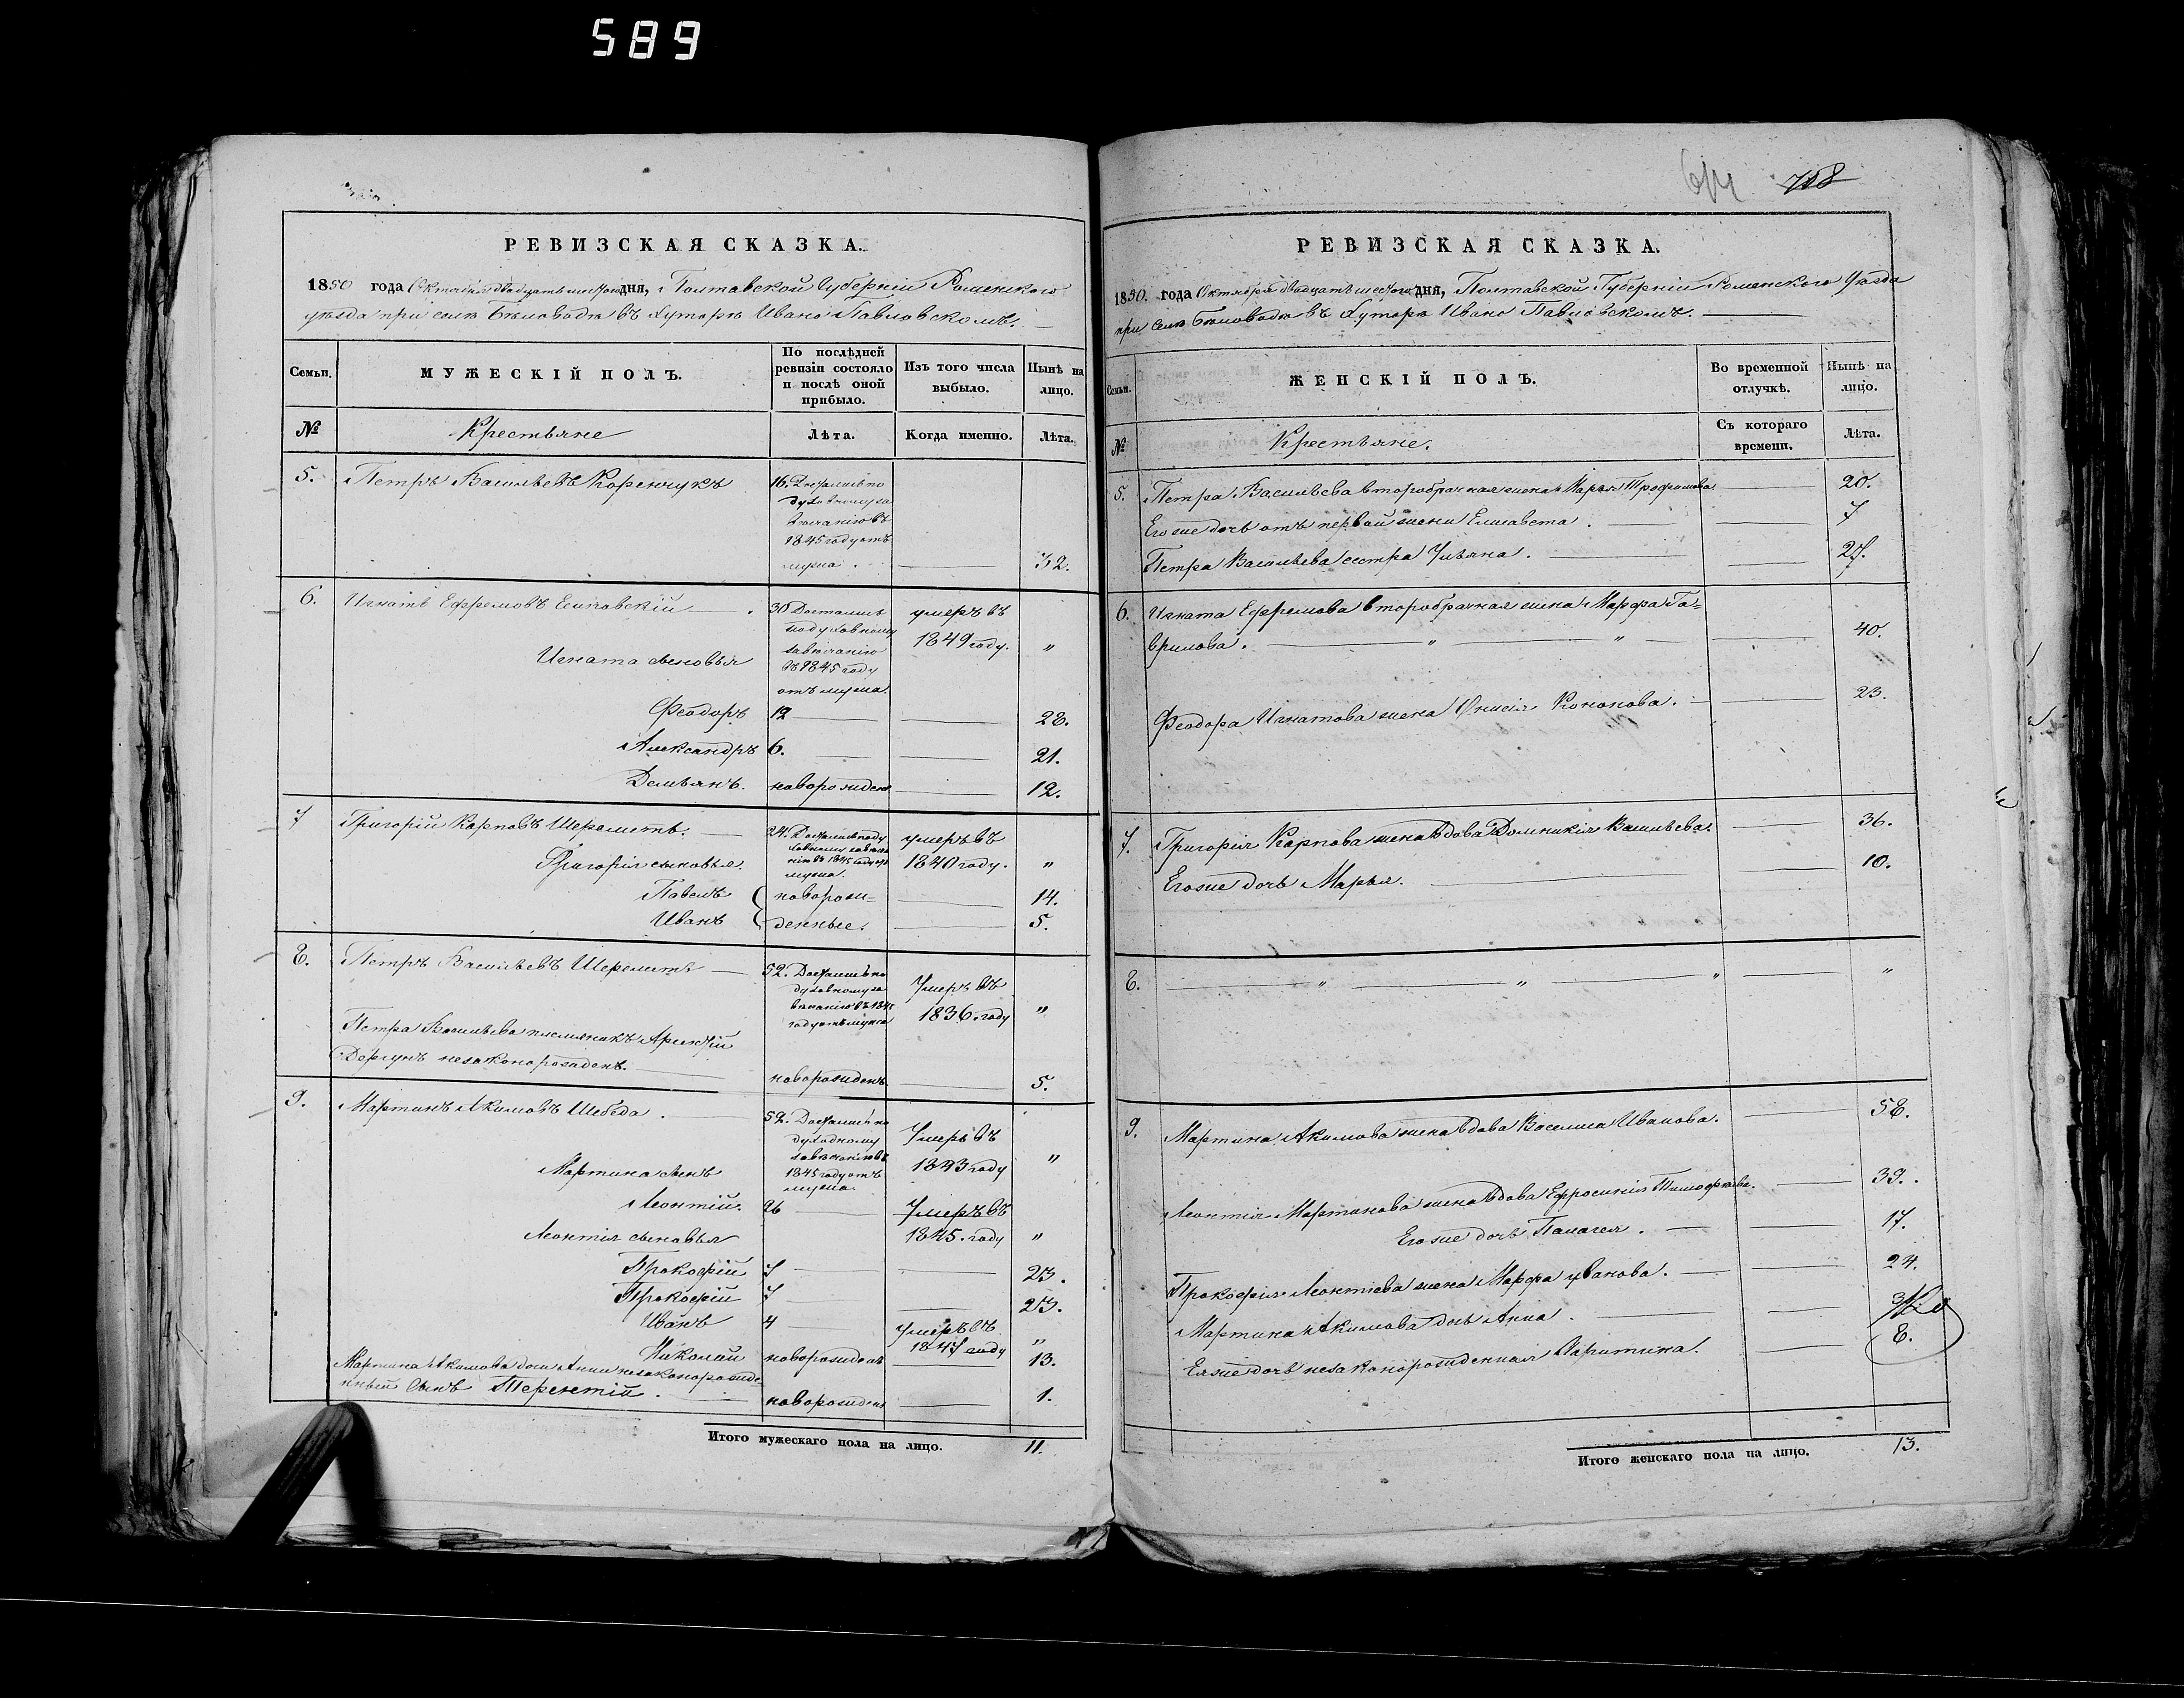 589
708
РЕВИЗСКАЯ СКАЗКА.
1850 года Октября двадцать шестого дня, Полтавской Губерніи Роменского
уезда при селе Беловоде въ Хуторе Ивано Павловскомъ.
Семьи.
МУЖЕСКІЙ ПОЛЪ.
По послѣдней
ревизіи состояло
и послѣ оной
прибыло.
Изъ того числа
выбыло.
Нынѣ на
лицо.
№
Крестьяне
Лѣта.
Когда именно.
Лѣта.
5. Петръ Васильевъ Коренчукъ
16. Достались по
духовному за
вѣчанію въ
1845 году отъ
мужа.
32.
6. Игнатъ Ефремовъ
30 Достались
по духовному
завѣчанію
въ 1845 году
отъ мужа.
умеръ въ
1849 году. "
Игната сыновья
Феодоръ 12 28.
Александръ 6. 21.
Демьянъ. новорожденъ 12.
7 Григорій Карповъ Шереметъ.
24. Достались по ду
ховному завѣча
нію въ 1845 году отъ
мужа.
умеръ въ
1840 году. "
Григорія сыновья.
Павелъ новорож= 14.
Иванъ денные. 5.
8. Петръ Васильевъ Шереметъ
52. Достались по
духовному за
вѣчанію въ 1845
году отъ мужа
Умеръ въ
1836. году "
Петра Васильева племяникъ
незаконорожденъ.
новорожденъ 5.
9. Мартинъ Акимовъ Шебеда.
52. Достались по
духовному
завѣчанію въ
1845 году отъ
мужа.
Умеръ въ
1843 году "
Мартина сынъ
Леонтій. 26 Умеръ въ
1845. году "
Леонтія сыновья
Прокофій 7 23.
Прокофій 7 23.
Иванъ 4 Умеръ въ
1847 году "
Николай новорожденъ 13.
Мартина Акимова дочи Анны незаконорожде=
нный сынъ Терентій. новорожденъ 1.
Итого мужескаго пола на лицо. 11.
РЕВИЗСКАЯ СКАЗКА.
1850. года Октября двадцать шестого дня, Полтавской Губерніи Роменского Уезда
при селе Беловоде въ Хуторе Ивано Павловскомъ.
Семьи.
ЖЕНСКІЙ ПОЛЪ.
Во временной
отлучкѣ.
Нынѣ на
лицо.
№
Крестьяне.
Съ котораго
времени.
Лѣта.
5. Петра Васильева второбрачная жена Марья Трофимова. 20.
Его же дочь отъ первой жены Елисавета. 7
Петра Васильева сестра Ульяна. 27.
6. Игната Ефремова второбрачная жена Марфа Га=
врилова. " " 40.
Феодора Игнатова жена Онисія Кононова. 23.
7. Григорія Карпова жена вдова Домникія Васильева. 36.
Его же дочь Марья. 10.
8. " " " "
9. Мартина Акимова жена вдова Василиса Иванова. 58.
Леонтія Мартинова жена вдова Ефросинія Тимофеева. 39.
Его же дочь Палагея. 17.
Прокофія Леонтіева жена Марфа Иванова. 24.
Мартина Акимова дочь Анна.
Ея же дочь незаконорожденная Харитина. 8.
Итого женскаго пола на лицо. 13.